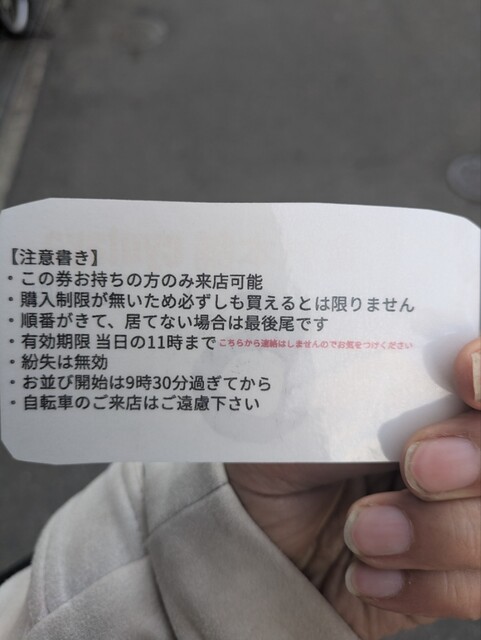 【注意書き】
・この券お持ちの方のみ来店可能
・購入制限が無いため必ずしも買えるとは限りません
・順番がきて、居てない場合は最後尾です
・有効期限 当日の11時まで こちらから連絡はしませんのでお気をつけください
・紛失は無効
・お並び開始は9時30分過ぎてから
・自転車のご来店はご遠慮下さい